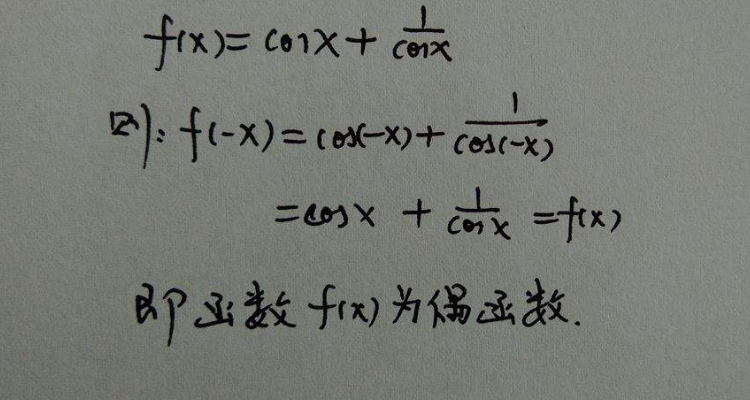 f(x)=cosx+1/cosx
则:f(-x)=cos(-x)+1/cos(-x)
=cosx+1/cosx=f(x)
即函数f(x)为偶函数.